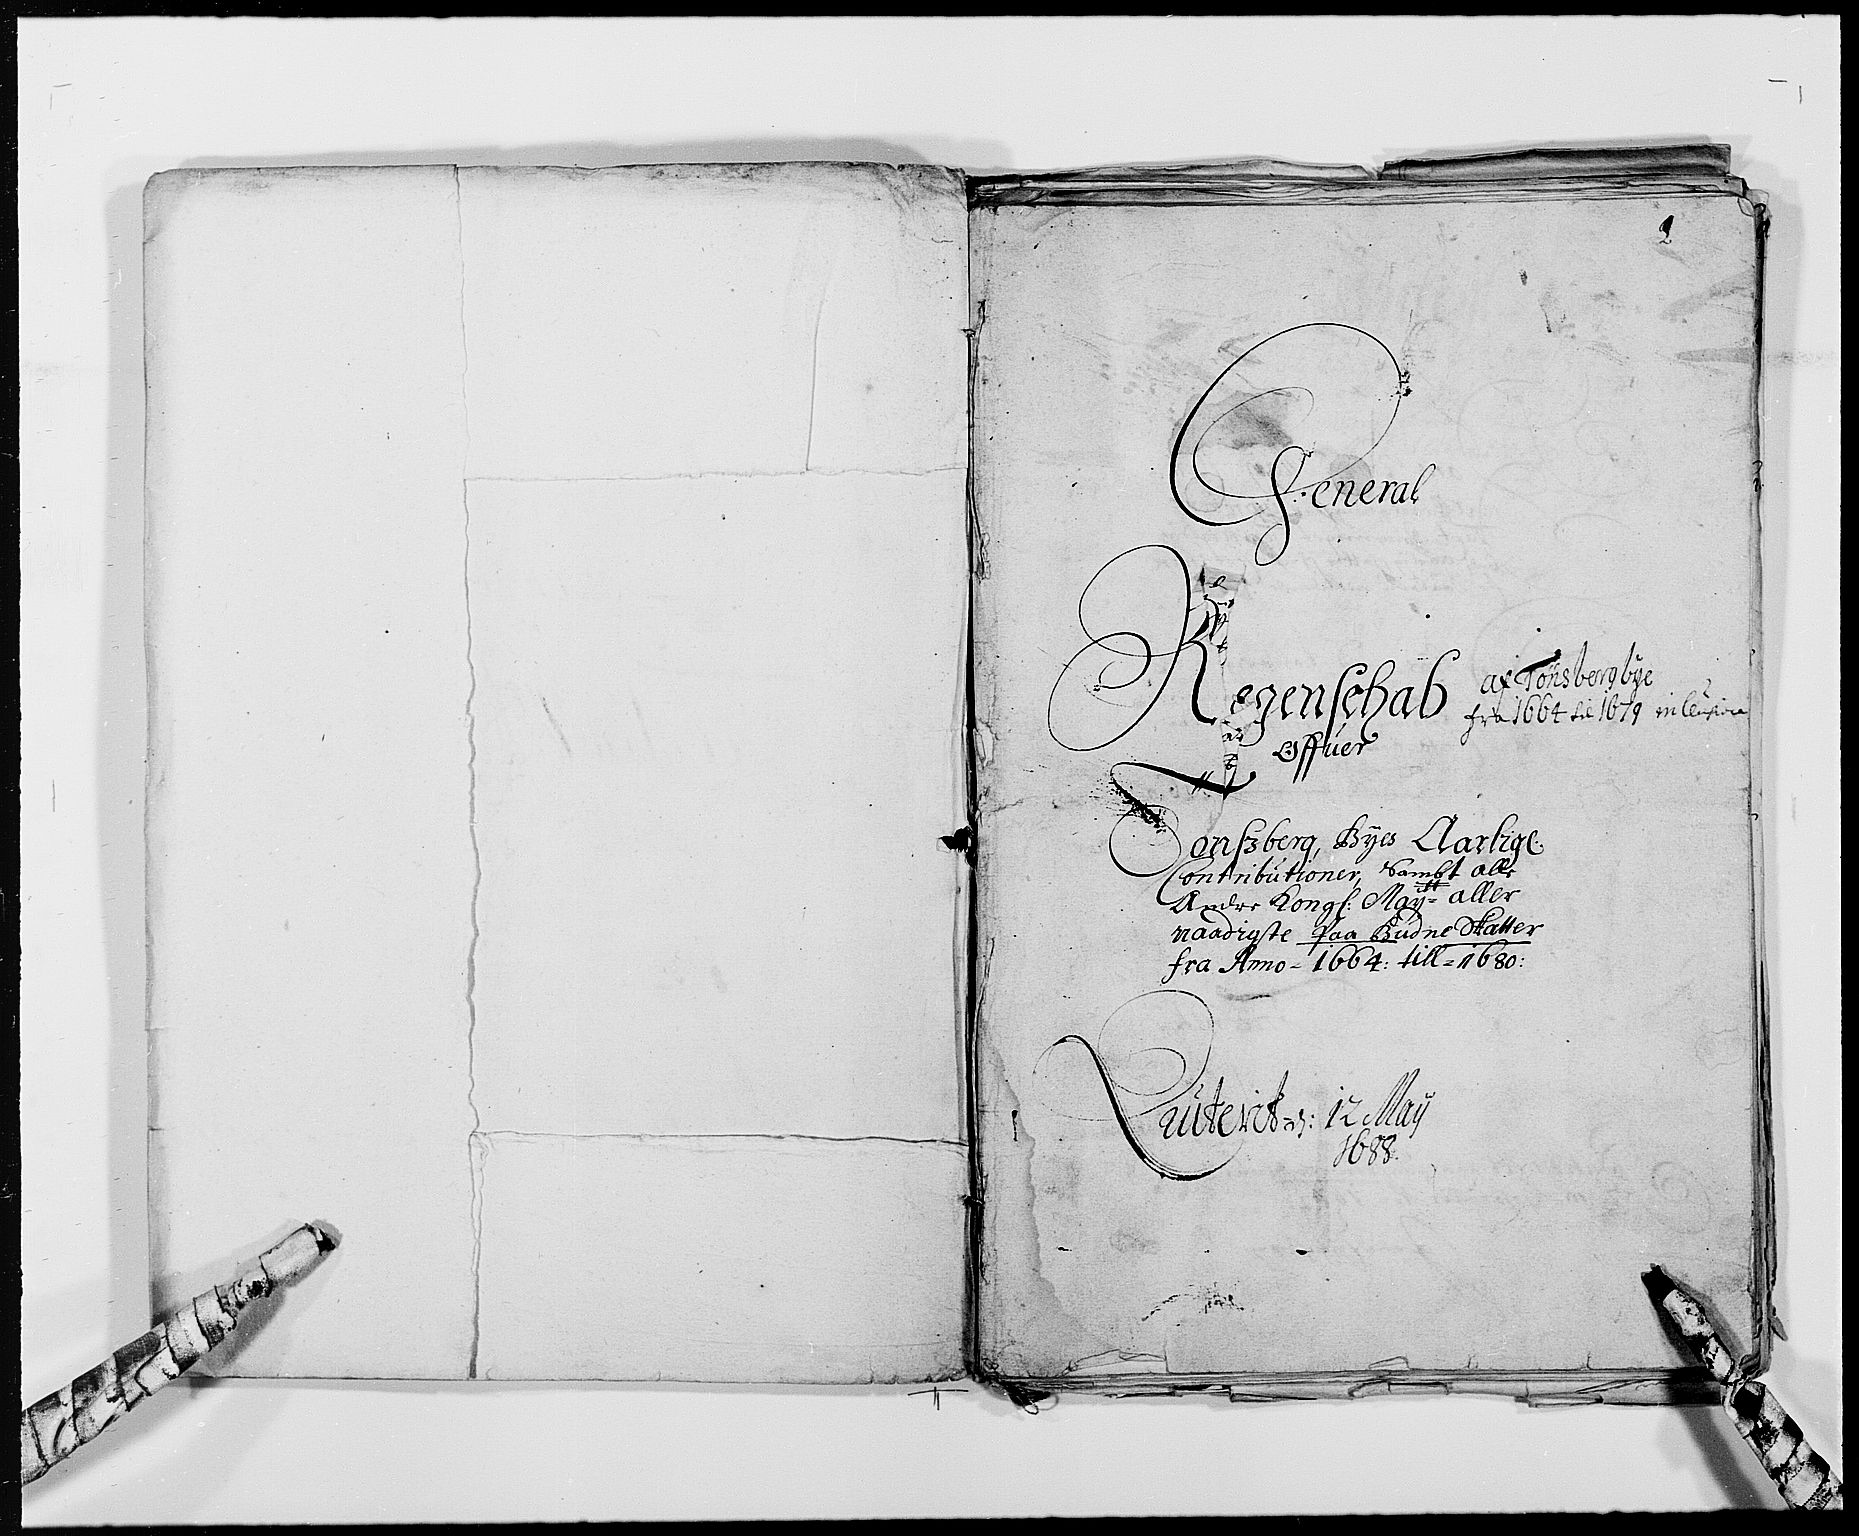 General
Regenschab af Tønsberg bye
fra 1664 til 1679 inclusive
Offuer
Tonsberg, Byes Aarlige
Contributioner, Sambt alle
Andre Kongl: Maÿtt= aller
naadigste Paa Budne Skatter
fra Anno = 1664: till = 1680:
Quiterit d: 12 Maÿ
1688.